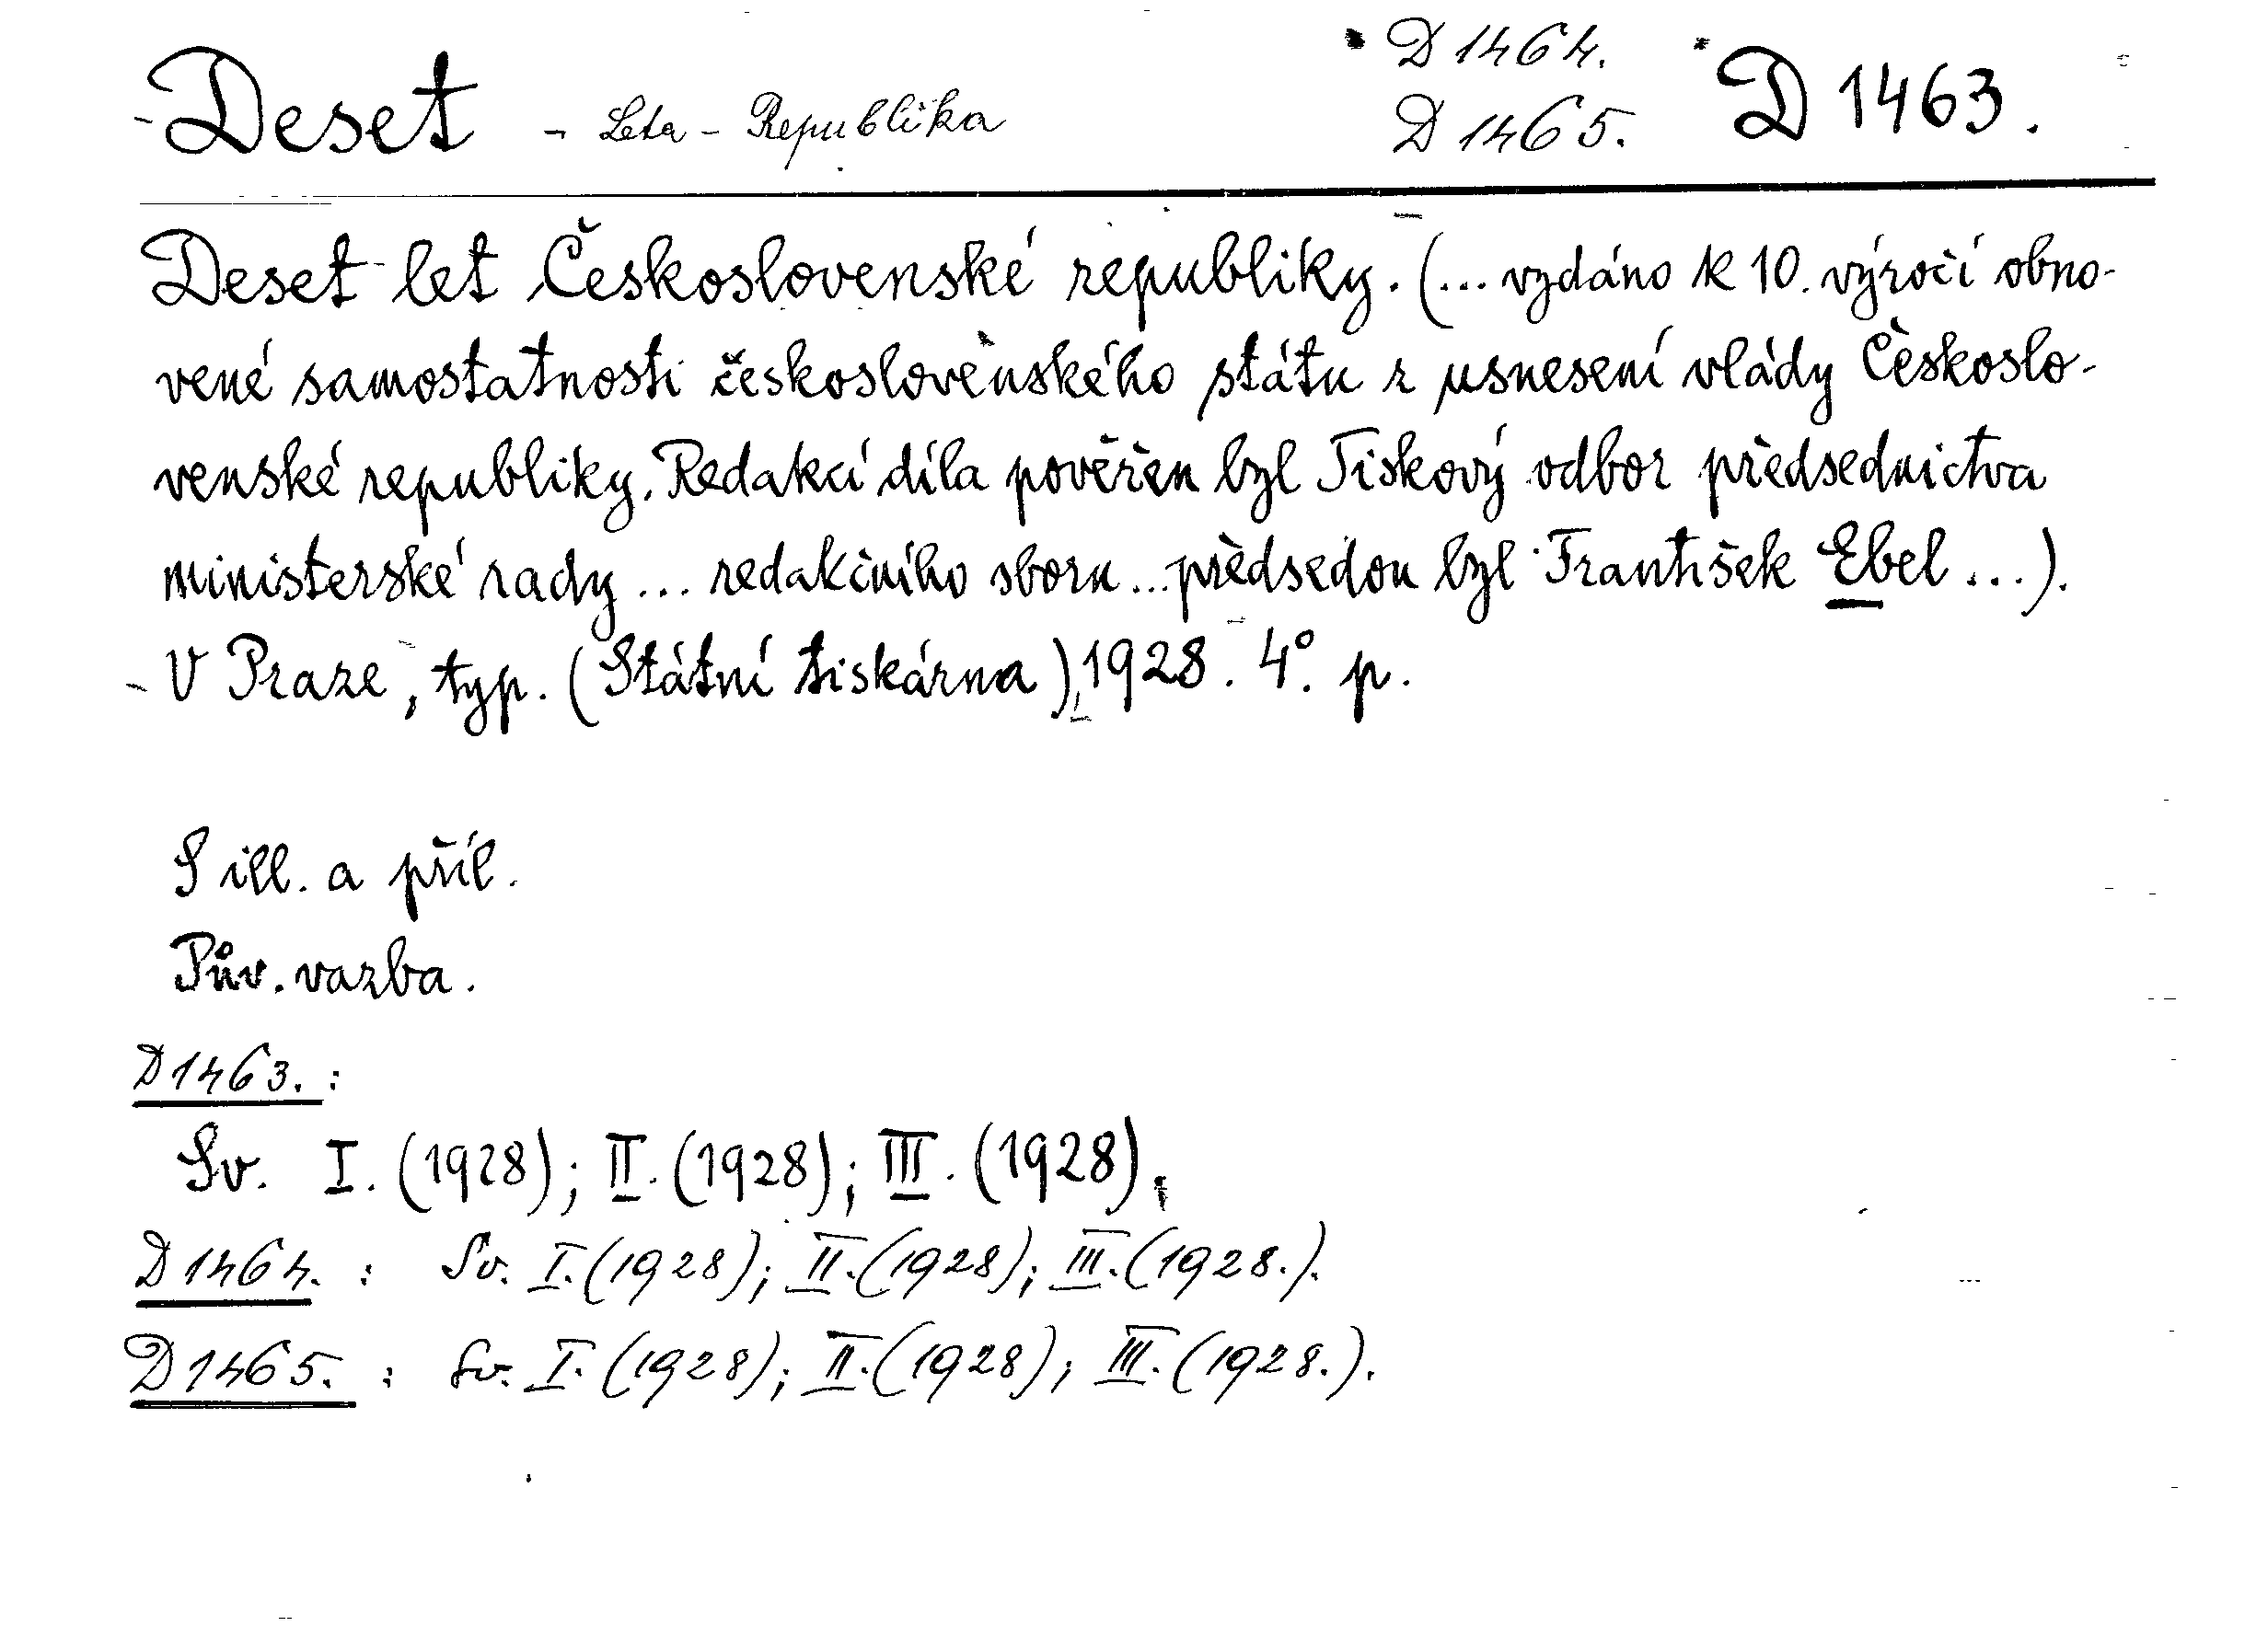 Deset - Leta - Republika D 1464. D 1463.
D 1465.
Deset let Československé republiky. (... vydáno k 10. výročí obno-
vené samostatnosti československého státu z usnesení vlády Českoslo-
venské republiky. Redakcí díla pověřen byl Tiskový odbor předsednictva
ministerské rady ... redakčního sboru ... předsedou byl František Ebel ...).
V Praze, typ. (Státní tiskárna), 1928. 4°. p.
S ill. a příl.
Pův. vazba.
D 1463. :
Sv. I. (1928); II. (1928); III. (1928).
D 1464. : Sv. I. (1928); II. (1928); III. (1928.).
D 1465. : Sv. I. (1928); II. (1928); III. (1928.).